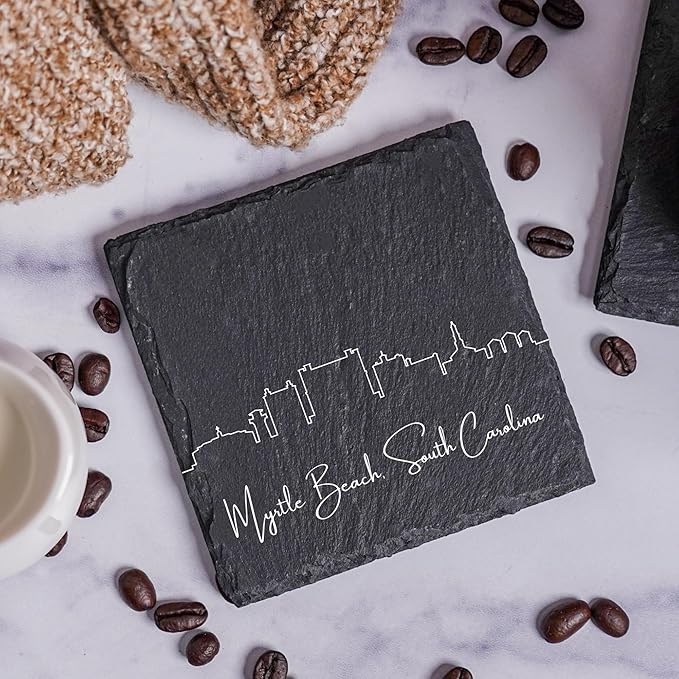 Myrtle Beach, South Carolina